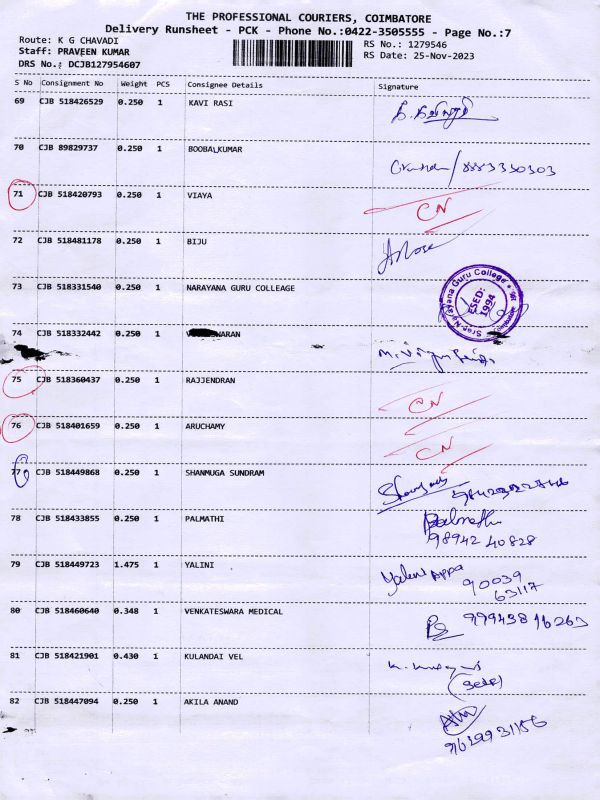 THE PROFESSIONAL COURIERS, COIMBATORE
Delivery Runsheet - PCK - Phone No.:0422-3505555 - Page No.:7
Route: K G CHAVADI
RS No.: 1279546
Staff: PRAVEEN KUMAR
RS Date: 25-Nov-2023
DRS No.: DCJB127954607
S No Consignment No Weight PCS Consignee Details Signature
69 CJB 518426529 0.250 1 KAVI RASI
70 CJB 89829737 0.250 1 BOOBALKUMAR
8883330303
71 CJB 518420793 0.250 1 VIAYA CN
72 CJB 518481178 0.250 1 BIJU
73 CJB 518331540 0.250 1 NARAYANA GURU COLLEAGE
Sree Narayana Guru College
ESED: 1994
74 CJB 518332442 0.250 1 WARAN
75 CJB 518360437 0.250 1 RAJJENDRAN CN
76 CJB 518401659 0.250 1 ARUCHAMY CN
77 CJB 518449868 0.250 1 SHANMUGA SUNDRAM
78 CJB 518433855 0.250 1 PALMATHI Palmathi
98942 40828
79 CJB 518449723 1.475 1 YALINI
90039
63117
80 CJB 518460640 0.348 1 VENKATESWARA MEDICAL
81 CJB 518421901 0.430 1 KULANDAI VEL
(Self)
82 CJB 518447094 0.250 1 AKILA ANAND